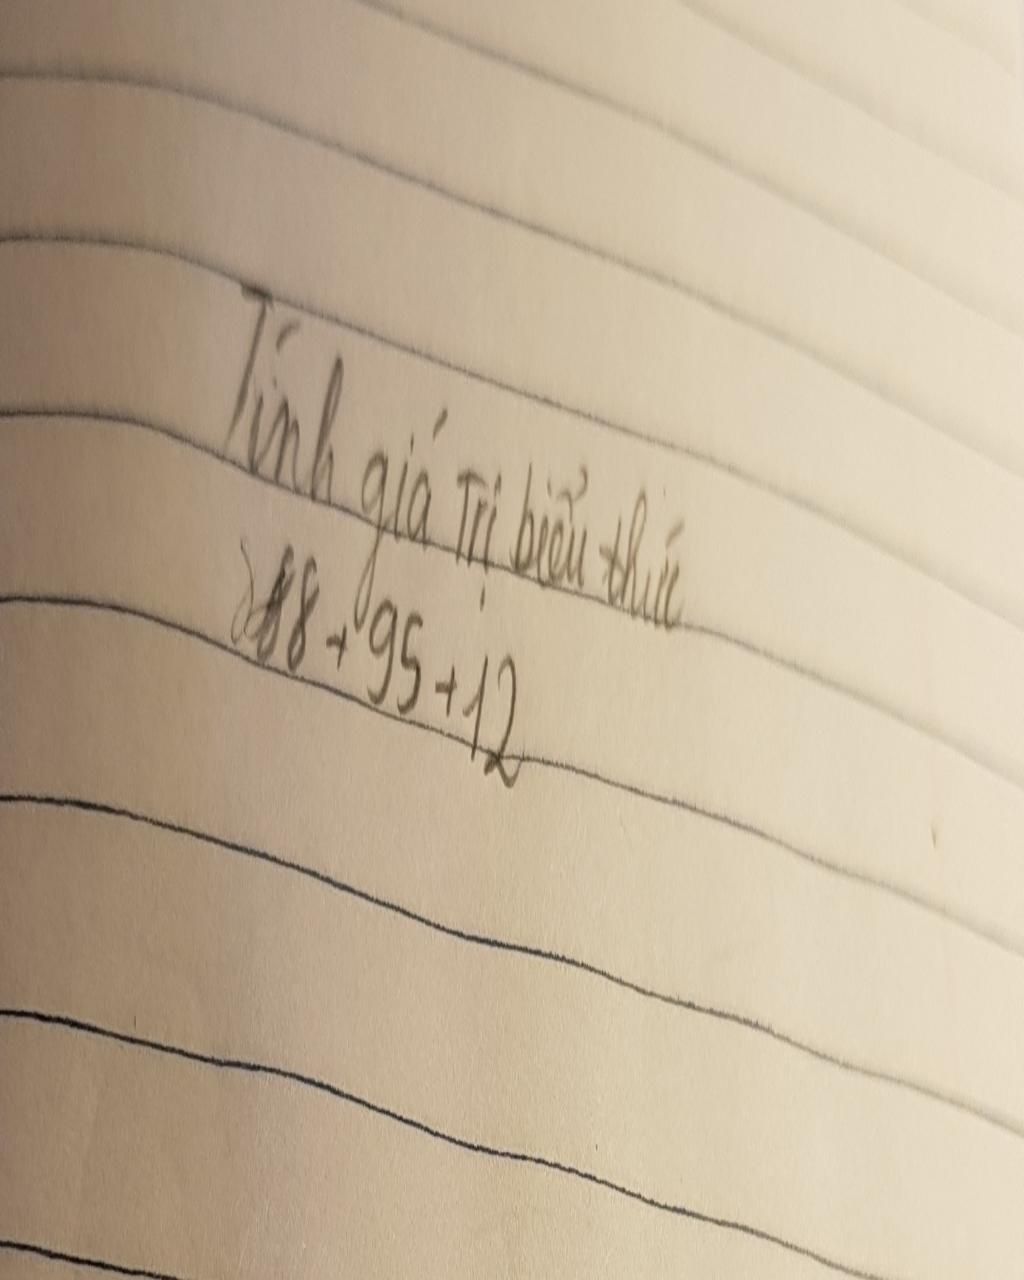 Tính giá trị biểu thức
88 + 95 + 12